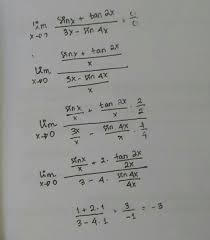 lim x→0 (sinx + tan 2x)/(3x - sin 4x) = 0/0
lim x→0 ((sinx + tan 2x)/x)/((3x - sin 4x)/x)
lim x→0 (sinx/x + tan 2x/x · 2/2)/(3x/x - sin 4x/x · 4/4)
lim x→0 (sinx/x + 2 · tan 2x/2x)/(3 - 4 · sin 4x/4x)
(1 + 2.1)/(3 - 4.1) = 3/-1 = -3